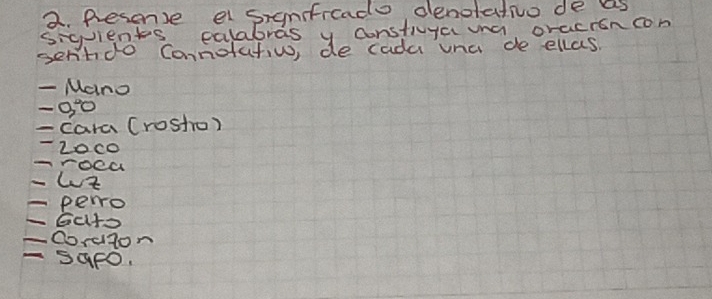 2. Presente el significado denotativo de las
siguientes palabras y construya una oración con
sentido connotativo, de cada una de ellas.
- Mano
- ojo
- Cara (rostro)
- Zoco
- roca
- luz
- perro
- Gato
- Corazon
- Sapo.